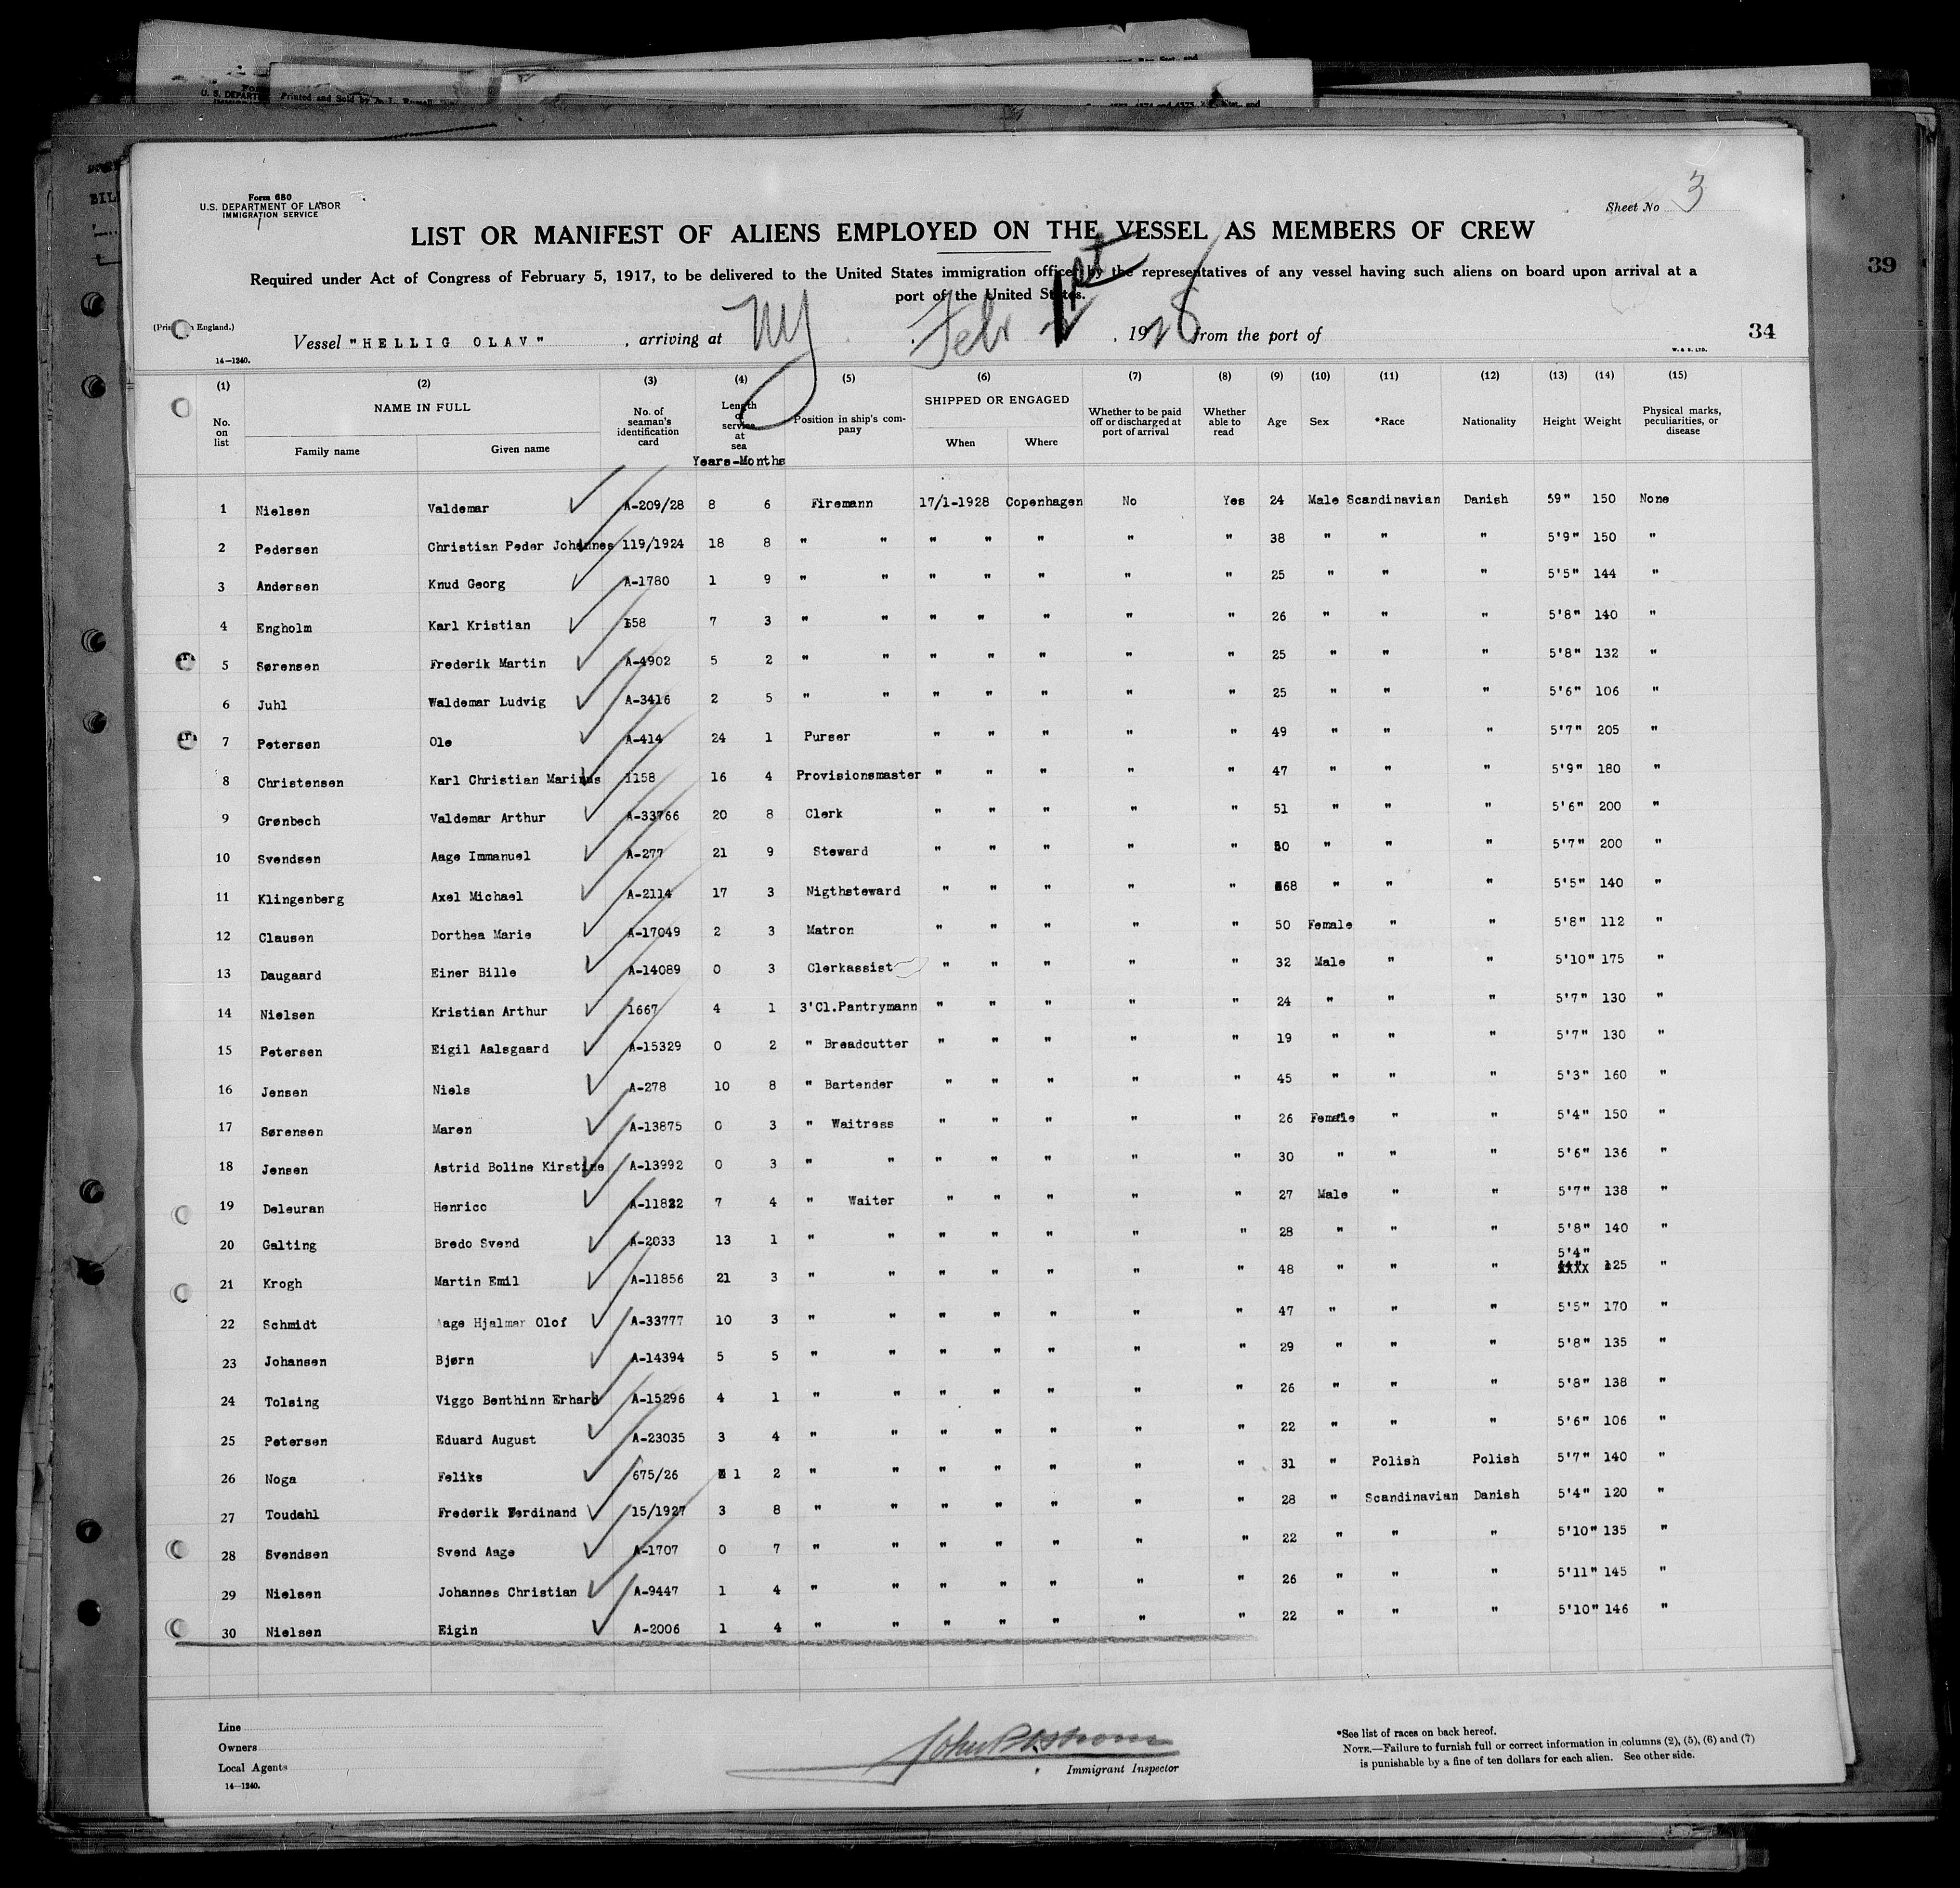 Form 680
U.S. DEPARTMENT OF LABOR
IMMIGRATION SERVICE
Sheet No 3
LIST OR MANIFEST OF ALIENS EMPLOYED ON THE VESSEL AS MEMBERS OF CREW
Required under Act of Congress of February 5, 1917, to be delivered to the United States immigration officer by the representatives of any vessel having such aliens on board upon arrival at a
port of the United States.
39
(Printed in England.)
Vessel "HELLIG OLAV", arriving at NY, Feb 1st, 1928 from the port of
34
14—1240.
W. & S. LTD.
(1) (2) (3) (4) (5) (6) (7) (8) (9) (10) (11) (12) (13) (14) (15)
No. on list NAME IN FULL Family name Given name No. of seaman's identification card Length of service at sea Position in ship's company SHIPPED OR ENGAGED When Where Whether to be paid off or discharged at port of arrival Whether able to read Age Sex *Race Nationality Height Weight Physical marks, peculiarities, or disease
Years-Months
1 Nielsen Valdemar A-209/28 8 6 Firemann 17/1-1928 Copenhagen No Yes 24 Male Scandinavian Danish 59" 150 None
2 Pedersen Christian Peder Johannes 119/1924 18 8 " " " " " " " 38 " " " 5'9" 150 "
3 Andersen Knud Georg A-1780 1 9 " " " " " " " 25 " " " 5'5" 144 "
4 Engholm Karl Kristian 158 7 3 " " " " " " " 26 " " " 5'8" 140 "
5 Sørensen Frederik Martin A-4902 5 2 " " " " " " " 25 " " " 5'8" 132 "
6 Juhl Waldemar Ludvig A-3416 2 5 " " " " " " " 25 " " " 5'6" 106 "
7 Petersen Ole A-414 24 1 Purser " " " " " 49 " " " 5'7" 205 "
8 Christensen Karl Christian Marinus 1158 16 4 Provisionsmaster " " " " " 47 " " " 5'9" 180 "
9 Grønbech Valdemar Arthur A-33766 20 8 Clerk " " " " " 51 " " " 5'6" 200 "
10 Svendsen Aage Immanuel A-277 21 9 Steward " " " " " 50 " " " 5'7" 200 "
11 Klingenberg Axel Michael A-2114 17 3 Nigthsteward " " " " " 68 " " " 5'5" 140 "
12 Clausen Dorthea Marie A-17049 2 3 Matron " " " " " 50 Female " " 5'8" 112 "
13 Daugaard Einer Bille A-14089 0 3 Clerkassist " " " " " 32 Male " " 5'10" 175 "
14 Nielsen Kristian Arthur 1667 4 1 3'Cl.Pantrymann " " " " " 24 " " " 5'7" 130 "
15 Petersen Eigil Aalsgaard A-15329 0 2 " Breadcutter " " " " " 19 " " " 5'7" 130 "
16 Jensen Niels A-278 10 8 " Bartender " " " " " 45 " " " 5'3" 160 "
17 Sørensen Maren A-13875 0 3 " Waitress " " " " " 26 Female " " 5'4" 150 "
18 Jensen Astrid Boline Kirstine A-13992 0 3 " " " " " " " 30 " " " 5'6" 136 "
19 Deleuran Henrico A-11822 7 4 " Waiter " " " " " 27 Male " " 5'7" 138 "
20 Galting Bredo Svend A-2033 13 1 " " " " " " " 28 " " " 5'8" 140 "
21 Krogh Martin Emil A-11856 21 3 " " " " " " " 48 " " " 5'4" 125 "
22 Schmidt Aage Hjalmar Olof A-33777 10 3 " " " " " " " 47 " " " 5'5" 170 "
23 Johansen Bjørn A-14394 5 5 " " " " " " " 29 " " " 5'8" 135 "
24 Tolsing Viggo Benthinn Erhard A-15296 4 1 " " " " " " " 26 " " " 5'8" 138 "
25 Petersen Eduard August A-23035 3 4 " " " " " " " 22 " " " 5'6" 106 "
26 Noga Feliks 675/26 1 2 " " " " " " " 31 " Polish Polish 5'7" 140 "
27 Toudahl Frederik Ferdinand 15/1927 3 8 " " " " " " " 28 " Scandinavian Danish 5'4" 120 "
28 Svendsen Svend Aage A-1707 0 7 " " " " " " " 22 " " " 5'10" 135 "
29 Nielsen Johannes Christian A-9447 1 4 " " " " " " " 26 " " " 5'11" 145 "
30 Nielsen Eigin A-2006 1 4 " " " " " " " 22 " " " 5'10" 146 "
Line
Owners
Local Agents
14—1240.
Immigrant Inspector
*See list of races on back hereof.
NOTE.—Failure to furnish full or correct information in columns (2), (5), (6) and (7)
is punishable by a fine of ten dollars for each alien. See other side.